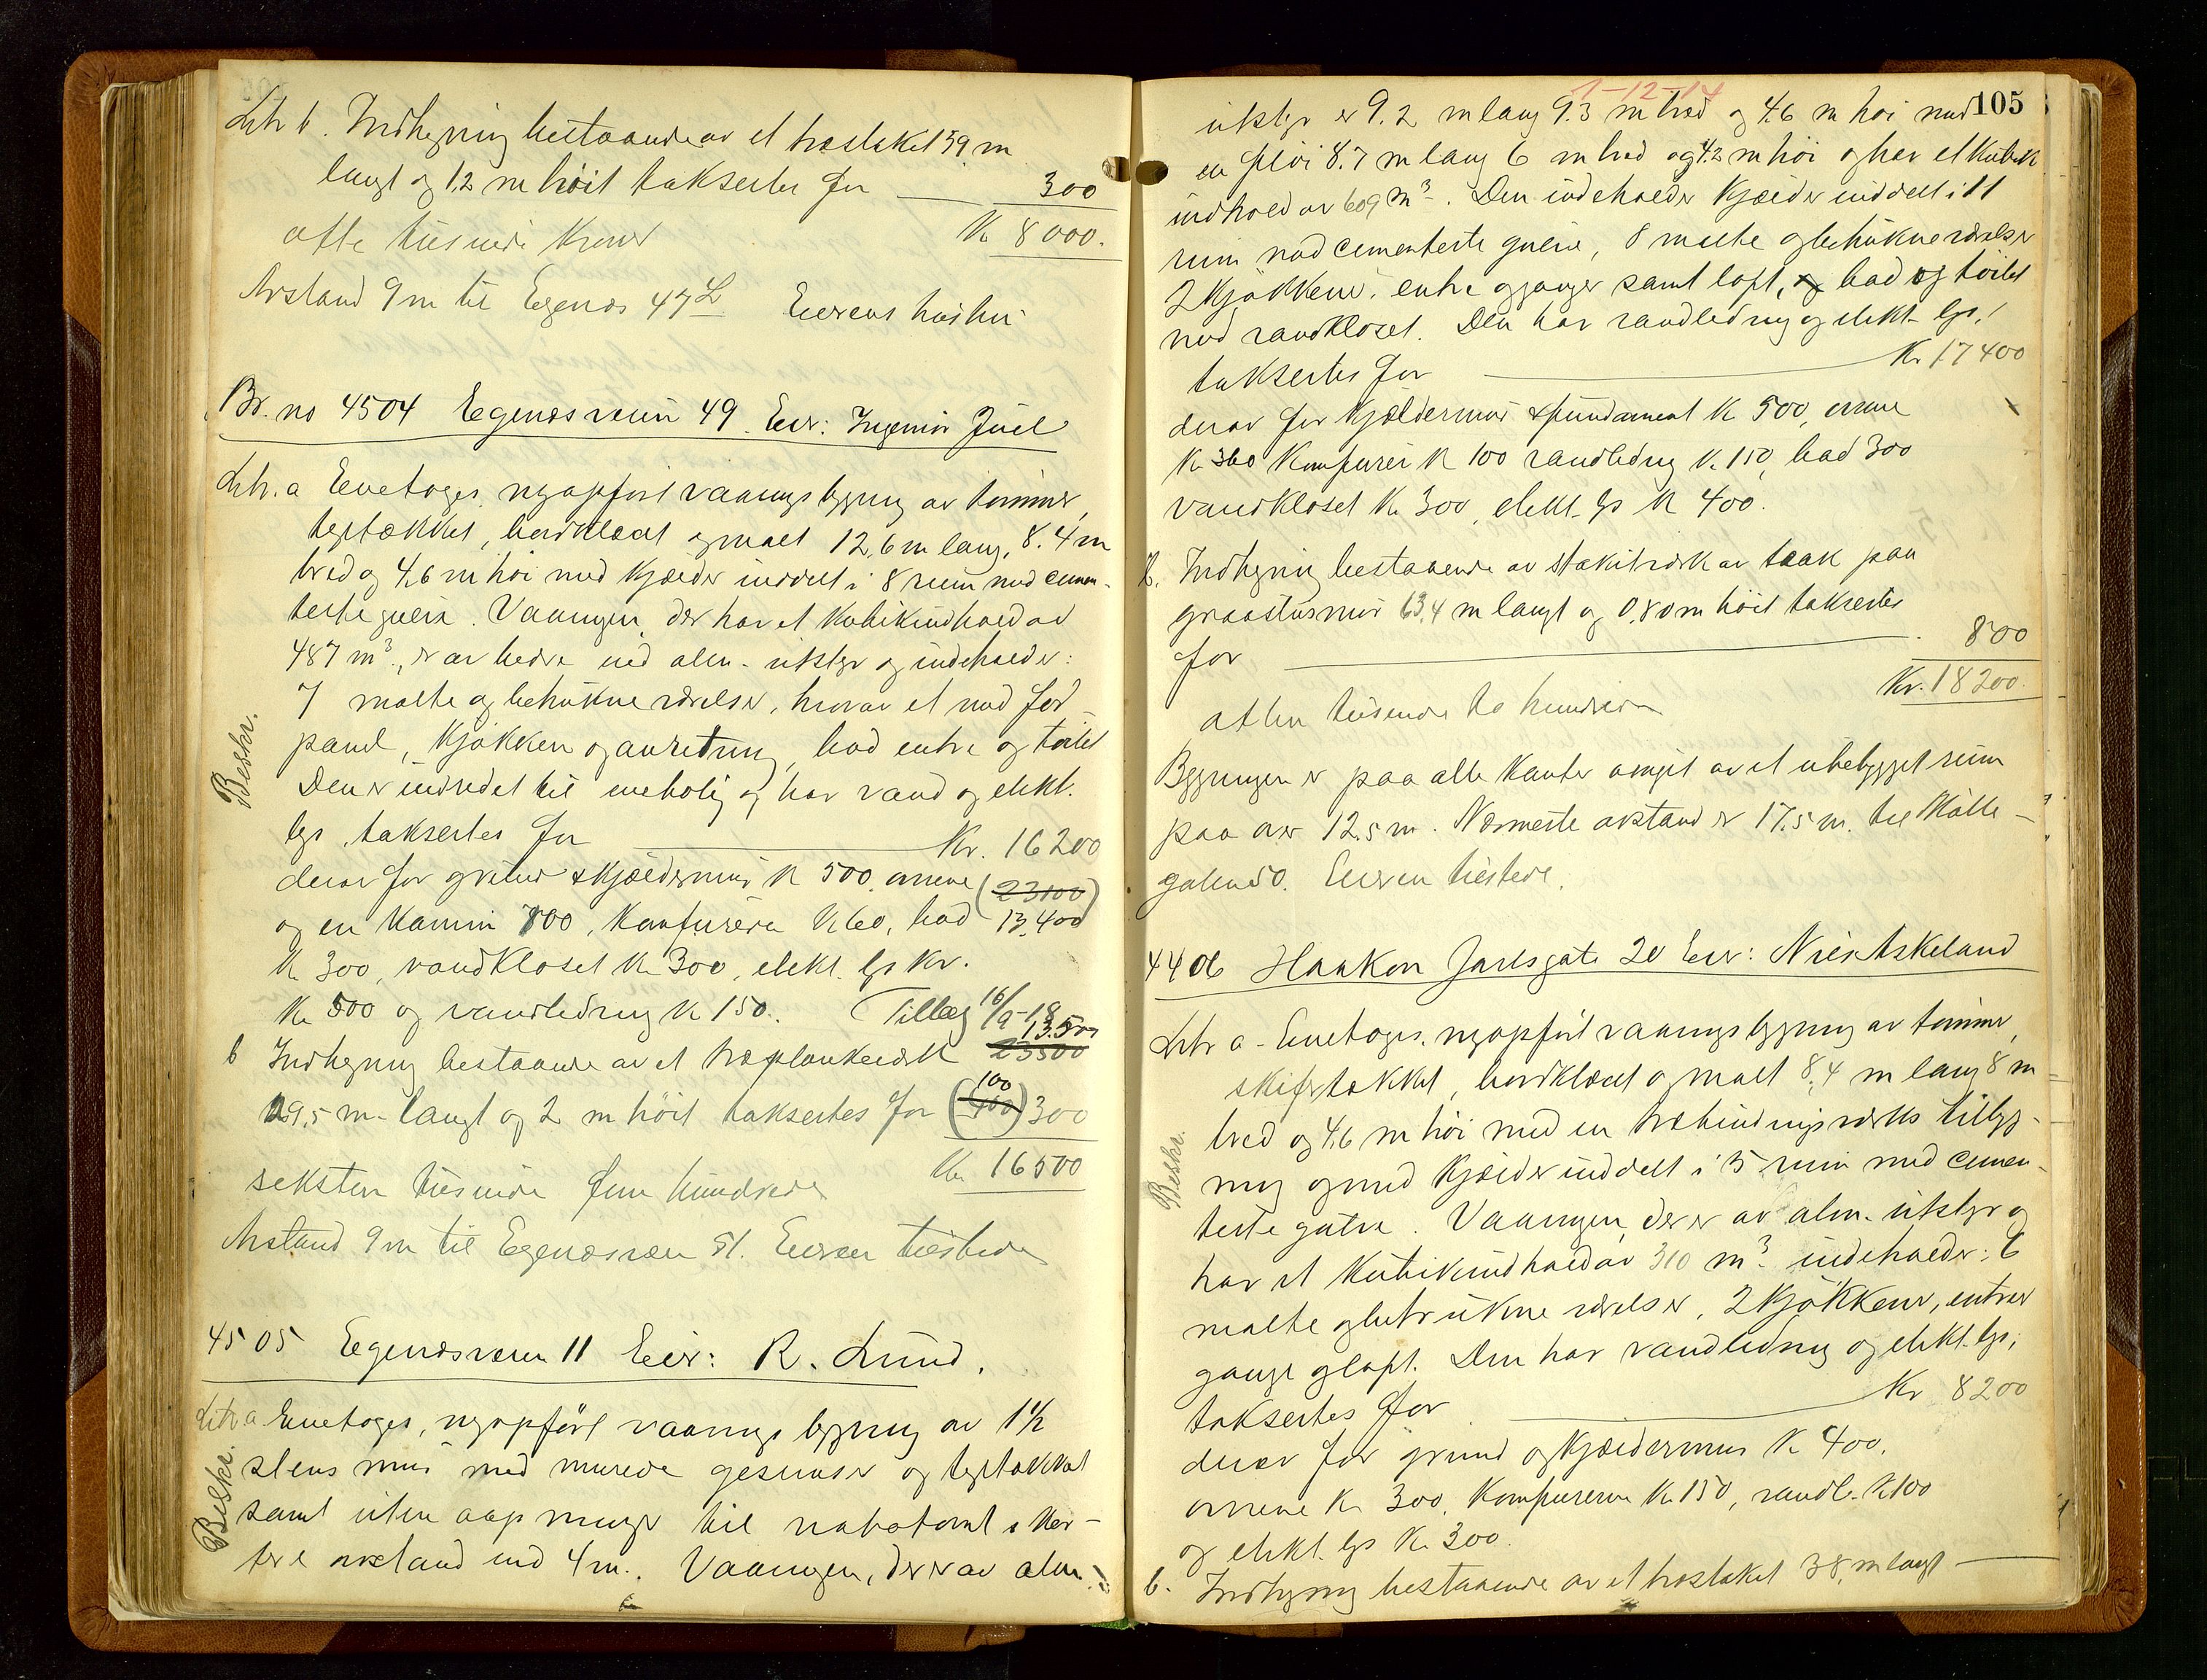 Litr b. Indhegning bestaaende av et træstaket 39 m
langt og 1.2 m høit takseres for 300
otte tusinde kroner Kr 8000.
Avstand 9 m til Egenæs 47
Br. no 4504 Egenæsveien 49 Eier: Ingeniør Juel
Litr. a Eenetages, nyopført vaaningsbygning av tømmer,
tegltækket, bordklædt og malt 12,6 m lang, 8.4 m
bred og 4,6 m høi med kjælder inddelt i 8 rum med cemen-
terte gulve. Vaaningen, der har et kubikindhold av
487 m³, er av bedre end alm. utstyr og indeholder:
7 malte og betrukne værelser, hvorav et med for-
panel, kjøkken og anretning, bad entre og toilet
Den er indredet til enebolig og har vand og elekt.
lys, takseres for Kr. 16200
derav for grund & kjældermur K 500, ovnene (23100)
og en kamin 700, komfuren K 60, bad 13,400
K 300, vandkloset K 300, elekt. lys Kr.
Kr 500 og vandledning K 150. Tillæg 16/9-18
13.500
b Indhegning bestaaende av et træplankeværk 23500
29,5 m langt og 2 m høit takseres for (100 400) 300
seksten tusinde fem hundrede Kr. 16500
Avstand 9 m til Egenæsveien 51. Eieren tilstede
4505 Egenæsveien 11 Eier: R. Lund.
Litr a Eenetages, nyopført vaaningsbygning av 1½
stens mur med murede gesimser og tegltækket
samt uten aapninger til nabotomt i kor-
tere avstand end 4 m. Vaaningen, der er av alm.
Beskr.
Beskr.
1-12-14
105
utstyr er 9.2 m lang 9.3 m bred og 4.6 m høi med
en fløi 8.7 m lang 6 m bred og 4.2 m høi og har et kubik
indhold av 609 m³. Den indeholder kjælder inddelt i 11
rum med cementerte gulve, 8 malte og betrukne værelser
2 kjøkkener, entre og ganger samt loft, og bad og toilet
med vandkloset. Den har vandledning og elekt. lys,
takseres for Kr 17400
derav for kjældermur & fundament K 500, ovnene
K 360 Komfurer K 100 vandledning K. 150, bad 300
vandkloset K 300, elekt. lys K 400.
b. Indhegning bestaaende av stakitværk av træ paa
graastensmur 63,4 m langt og 0.80 m høit takseres
for 800
atten tusinde to hundrede Kr. 18200.
Bygningen er paa alle kanter omgit av et ubebygget rum
paa over 12.5 m. Nærmeste avstand er 17.5 m. til Mølle-
gaten 50. Eieren tilstede.
4406 Haakon Jarlsgate 20 Eier: Niels Askeland
Litr a - Eenetages, nyopført vaaningsbygning av tømmer,
skifertækket, bordklædt og malt 8,4 m lang 8 m
bred og 4,6 m høi med en træbindingsverks tilbyg-
ning og med kjælder inddelt i 5 rum med cemen-
terte gulve. Vaaningen, der er av alm. utstyr og
har et kubikindhold av 310 m³ indeholder: 6
malte og betrukne værelser, 2 kjøkkener, entreer
gange og loft. Den har vandledning og elekt. lys,
takseres for Kr 8200
derav for grund og kjældermur K 400.
ovnene K 300, Komfurene K 150, vandl. K 100
og elekt. lys K 300.
b. Indhegning bestaaende av et træstaket 38, m langt
Beskr.